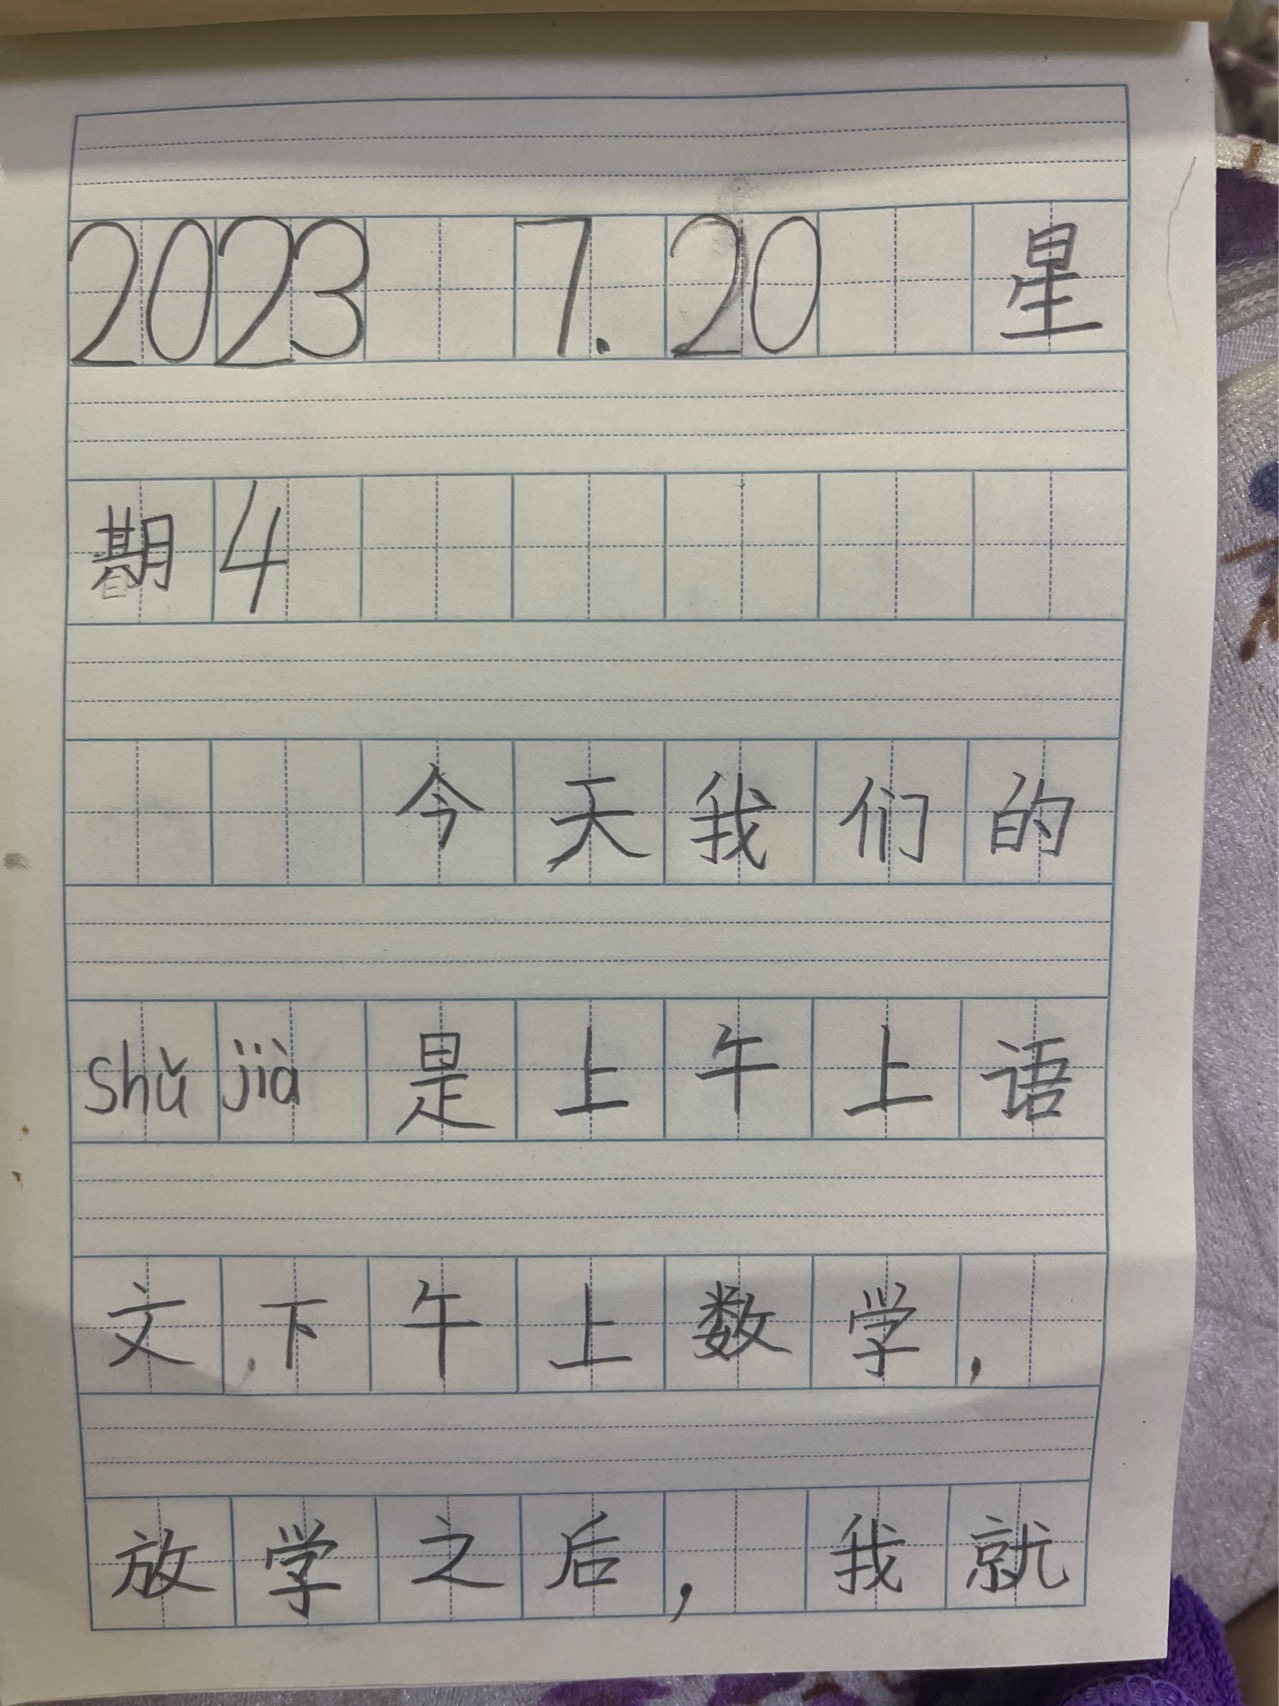 2023 7.20 星
期4
今天我们的
shǔ jià 是上午上语
文,下午上数学,
放学之后,我就